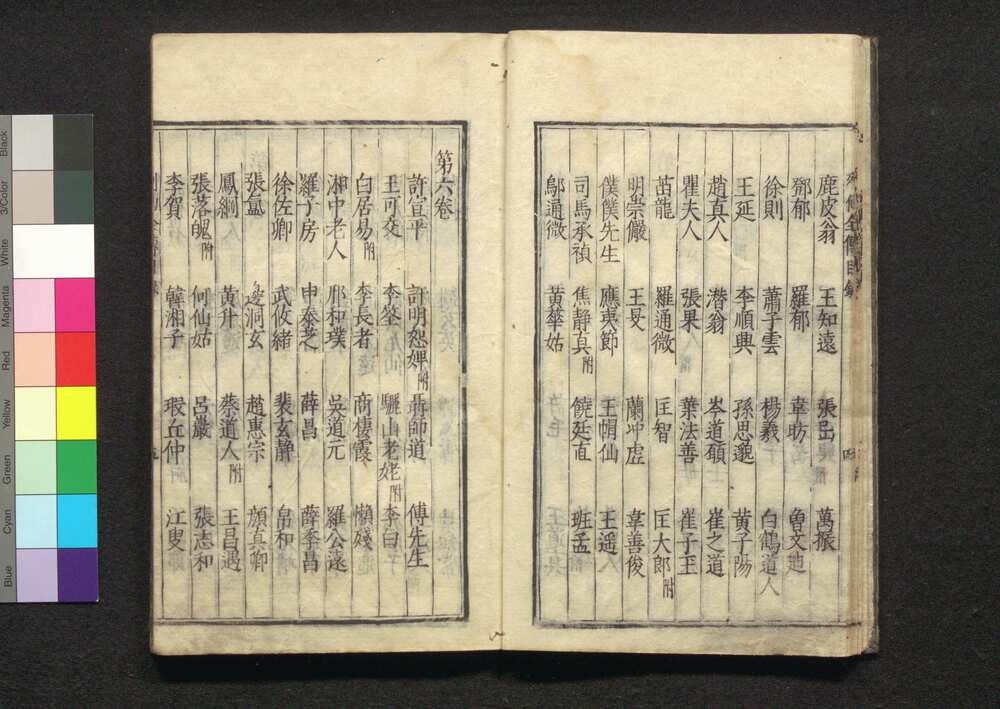 鹿皮翁 王知遠 張 萬振
鄧郁 羅郁 韋昉 曾文迪
徐則 蕭子雲 楊羲 白鶴道人
王延 李順興 孫思邈 黃子陽
趙真人 潛翁 岑道願 崔之道
瞿夫人 張果 葉法善 崔子玉
苗龍 羅通微 匡智 匡大郎附
明崇儼 王旻 蘭冲虛 韋善俊
僕僕先生 應夷節 王帽仙 王遥
司馬承禎 焦靜真附 饒廷直 班孟
鄔通微 黃華姑
第六卷
許宣平 許明恕婢附 聶師道 傅先生
王可交 李筌 驪山老姥附 李白
白居易附 李長者 商棲霞 懶殘
湘中老人 邢和璞 吳道元 羅公遠
羅子房 申泰芝 薛昌 薛季昌
徐佐卿 武攸緒 裴玄靜 帛和
張氳 邊洞玄 趙惠宗 顏真卿
鳳綱 黃升 蔡道人附 王昌遇
張落魄附 何仙姑 呂巖 張志和
李賀 韓湘子 瑕丘仲 江叟
Blue
Cyan
Green
Yellow
Red
Magenta
White
3/Color
Black